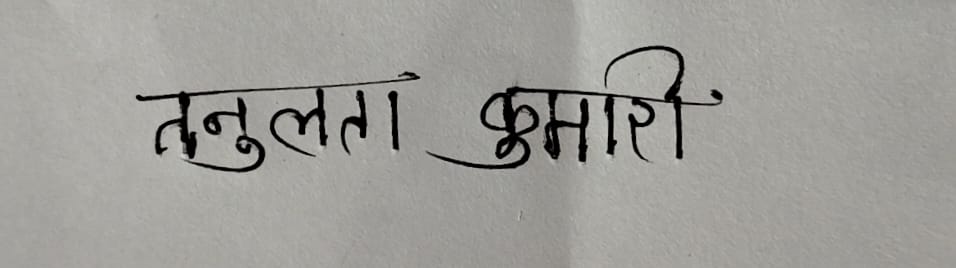 तनुलता कुमारी